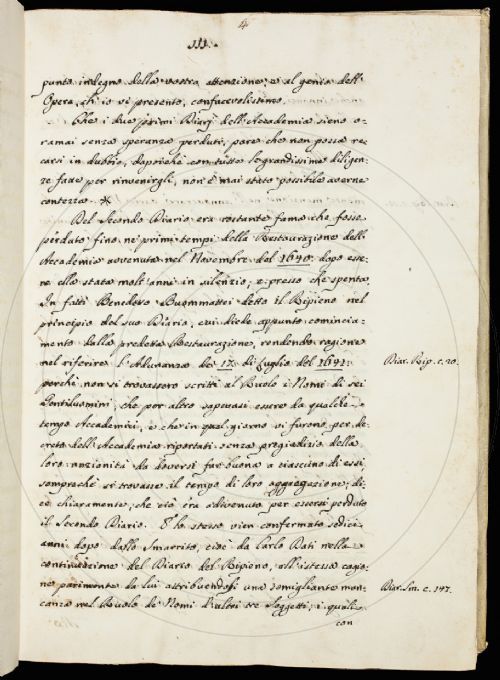 4
III.
punto indegno della vostra attenzione; e al genio dell'
Opera, ch' io vi presento, confacevolissimo.
Che i due primi Diarj dell' Accademia sieno o-
ramai senza speranza perduti, pare che non possa re-
carsi in dubbio, dapoichè con tutte le grandissime diligen-
ze fatte per rinvenirgli, non è mai stato possibile averne
contezza. *
Del Secondo Diario era costante fama che fosse
perduto fino ne' primi tempi della Restaurazione dell'
Accademia avvenuta nel Novembre del 1640. dopo esse-
re ella stata molt' anni in silenzio, e presso che spenta.
In fatti Benedetto Buommattei detto il Ripieno nel
principio del suo Diario, cui diede appunto comincia-
mento dalla predetta Restaurazione, rendendo ragione
nel riferire l' Adunanza de' 17. di Luglio del 1641.
perchè non si trovassero scritti al Ruolo i Nomi di sei
Gentiluomini, che per altro sapevasi essere da qualche
tempo Accademici, e che in quel giorno vi furono per de-
creto dell' Accademia riportati senza pregiudizio della
loro anzianità da doversi far buona a ciascuno di essi,
sempreche si trovasse il tempo di loro aggregazione; di-
ce chiaramente, che ciò era adivenuto per essersi perduto
il Secondo Diario. E lo stesso vien confermato sedici
anni dopo dallo Smarrito, cioè da Carlo Dati nella
continuazione del Diario del Ripieno, all' istessa cagio-
ne parimente da lui attribuendosi una somigliante man-
canza nel Ruolo de' Nomi d' altri tre Soggetti; i quali
con
Diar. Rip. c. 20.
Diar. Sm. c. 147.